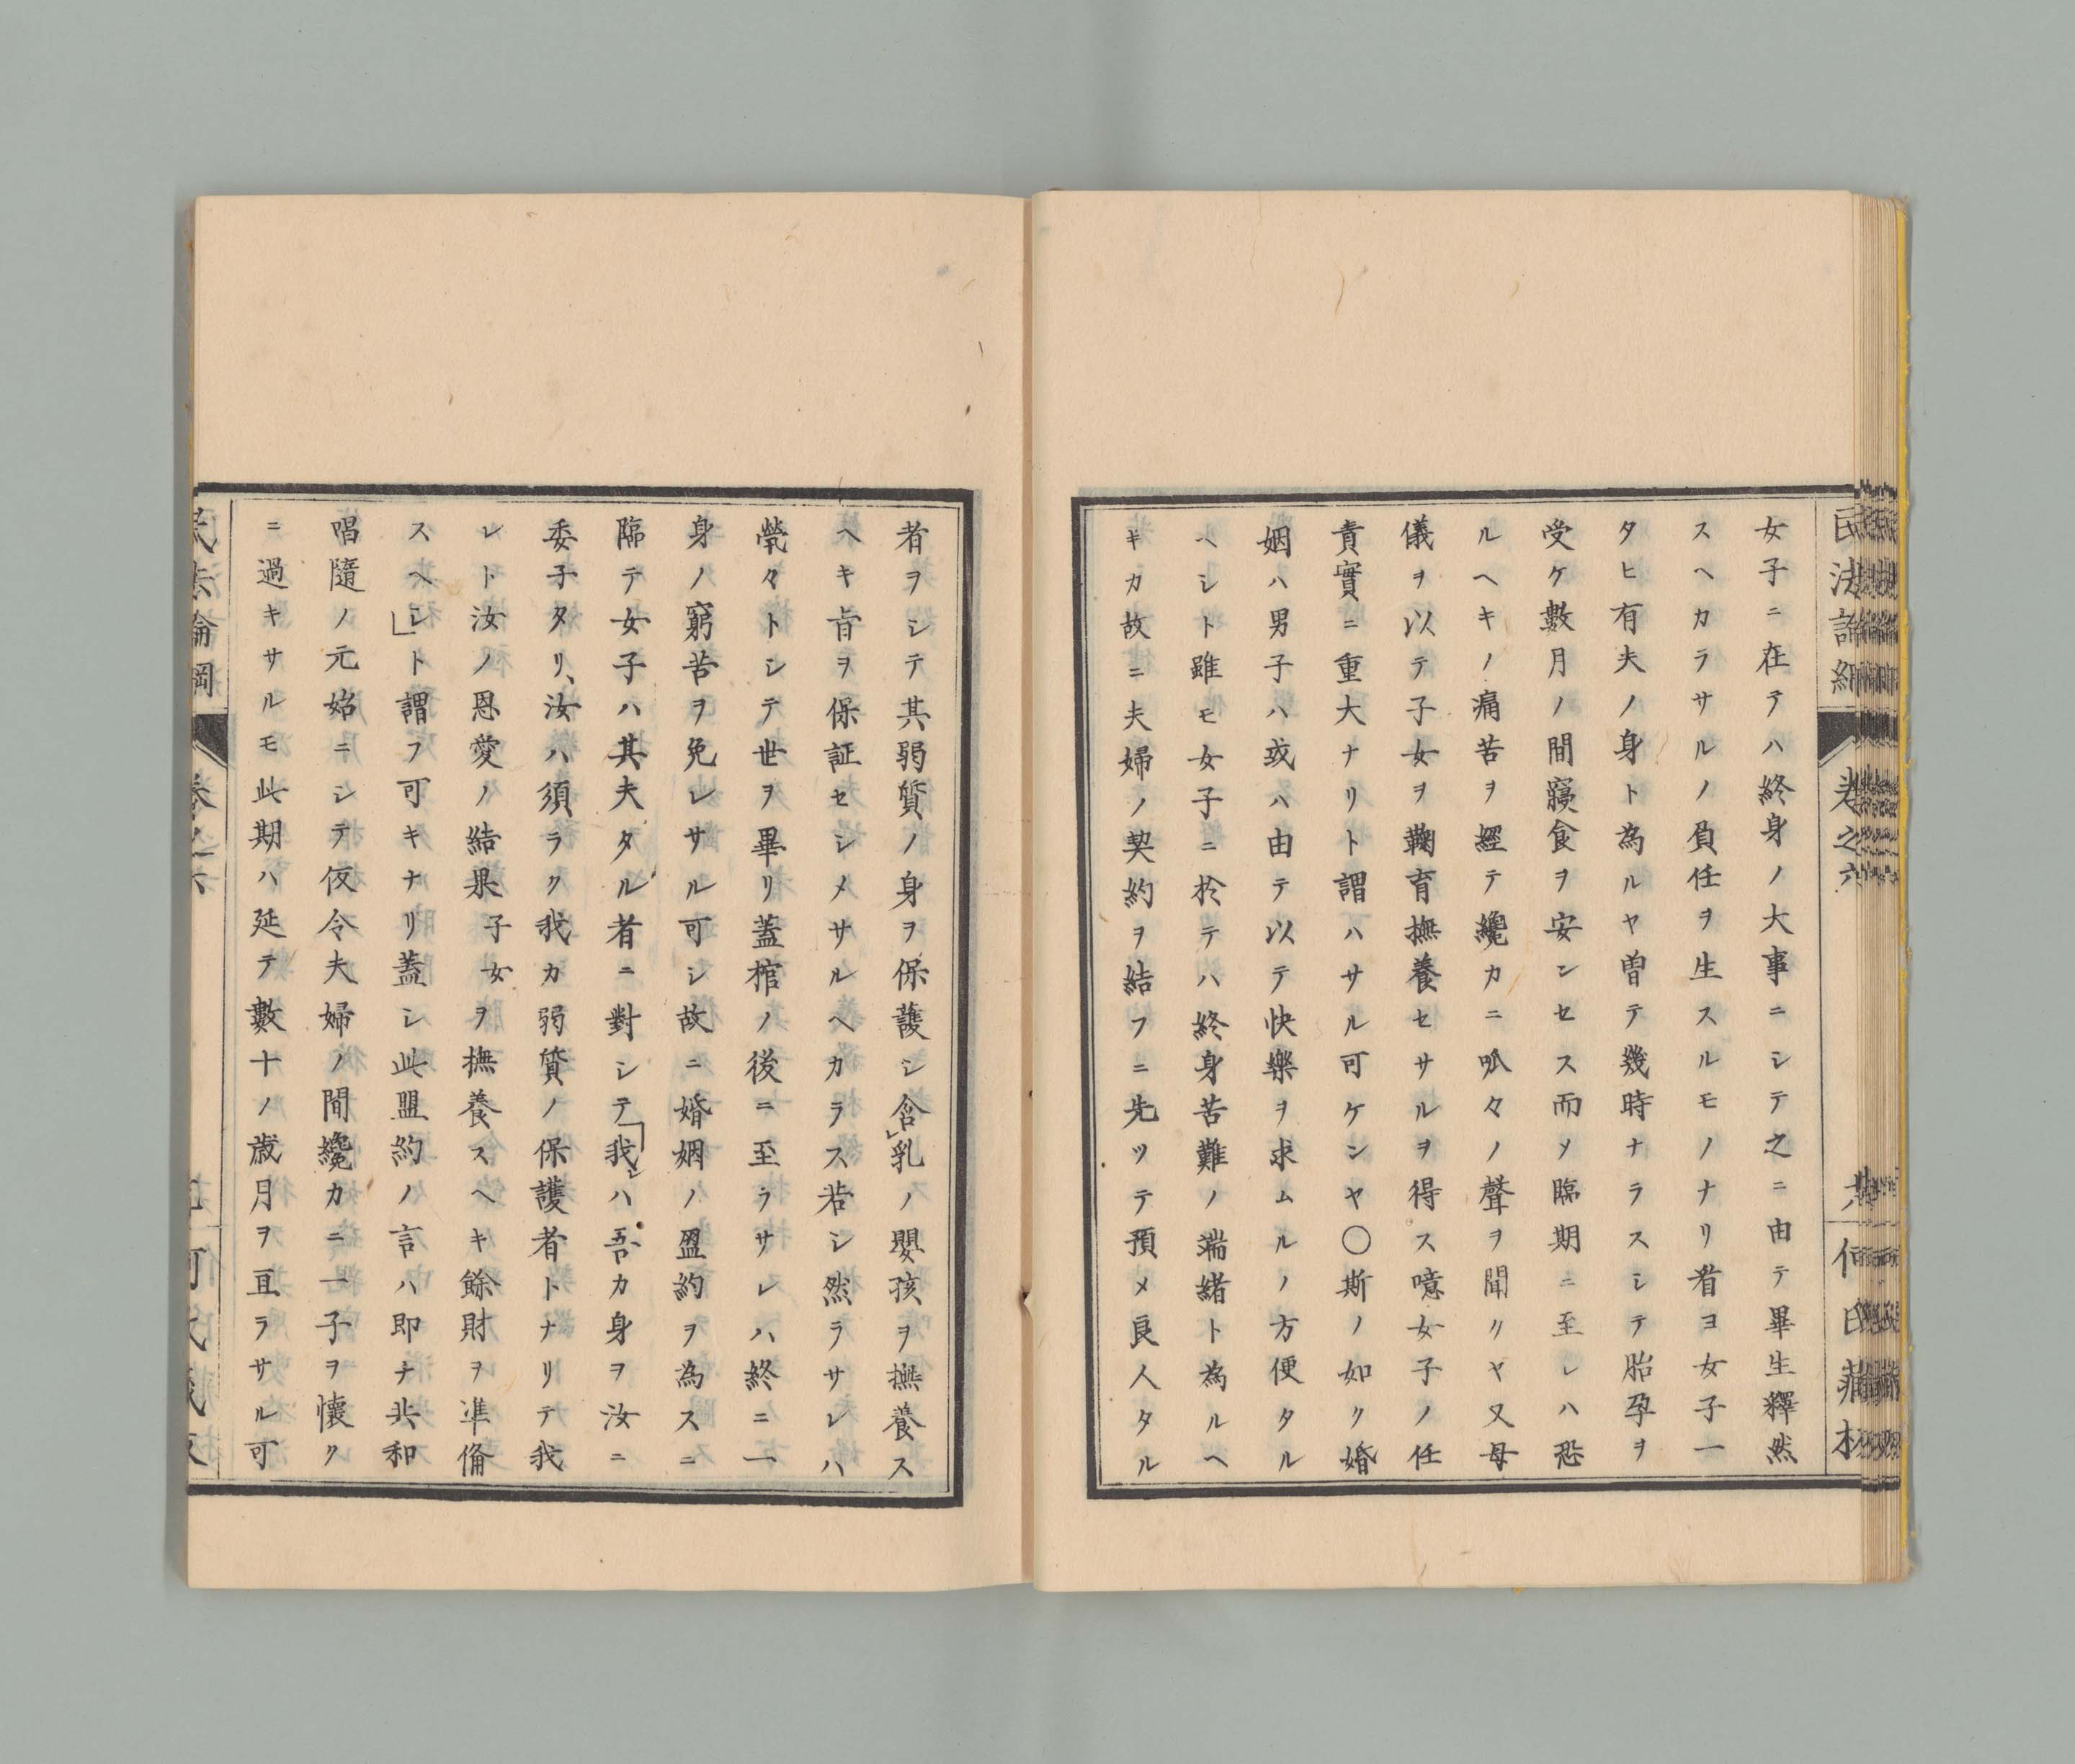 民法論綱
卷之六
何氏藏板
女子ニ在テハ終身ノ大事ニシテ之ニ由テ畢生釋然
スヘカラサルノ負任ヲ生スルモノナリ看ヨ女子一
タヒ有夫ノ身ト為ルヤ曽テ幾時ナラスシテ胎孕ヲ
受ケ數月ノ間寢食ヲ安ンセス而メ臨期ニ至レハ恐
ルヘキノ痛苦ヲ經テ纔カニ呱々ノ聲ヲ聞クヤ又母
儀ヲ以テ子女ヲ鞠育撫養セサルヲ得ス噫女子ノ任
責實ニ重大ナリト謂ハサル可ケンヤ〇斯ノ如ク婚
姻ハ男子ハ或ハ由テ以テ快樂ヲ求ムルノ方便タル
ヘシト雖モ女子ニ於テハ終身苦難ノ端緒ト為ルヘ
キカ故ニ夫婦ノ契約ヲ結フニ先ツテ預メ良人タル
者ヲシテ其弱質ノ身ヲ保護シ含乳ノ嬰孩ヲ撫養ス
ヘキ旨ヲ保証セシメサルヘカラス若シ然ラサレハ
煢々トシテ世ヲ畢リ蓋棺ノ後ニ至ラサレハ終ニ一
身ノ窮苦ヲ免レサル可シ故ニ婚姻ノ盟約ヲ為スニ
臨テ女子ハ其夫タル者ニ對シテ「我レハ吾カ身ヲ汝ニ
委子タリ、汝ハ須ラク我カ弱質ノ保護者トナリテ我
レト汝ノ恩愛ノ結果子女ヲ撫養スヘキ餘財ヲ準備
スヘシ」ト謂フ可キナリ蓋シ此盟約ノ言ハ即チ共和
唱隨ノ元始ニシテ仮令夫婦ノ間纔カニ一子ヲ懷ク
ニ過キサルモ此期ハ延テ數十ノ歳月ヲ亘ラサル可
民法論綱
卷之六
何氏藏板